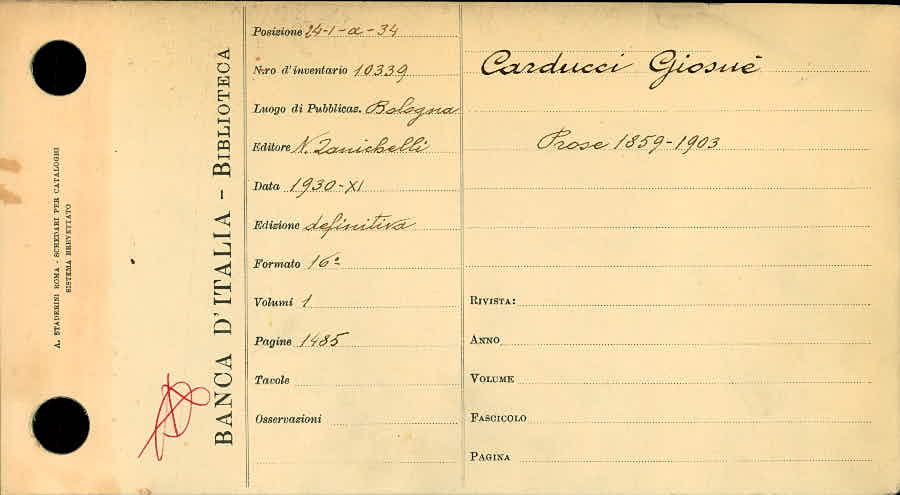 A. STADERINI ROMA - SCHEDARI PER CATALOGHI
SISTEMA BREVETTATO
BANCA D'ITALIA - BIBLIOTECA
Posizione 24-1-a-34
N.ro d'inventario 10339
Luogo di Pubblicaz. Bologna
Editore N. Zanichelli
Data 1930-XI
Edizione definitiva
Formato 16º
Volumi 1
Pagine 1485
Tavole
Osservazioni
Carducci Giosuè
Prose 1859-1903
RIVISTA:
ANNO
VOLUME
FASCICOLO
PAGINA